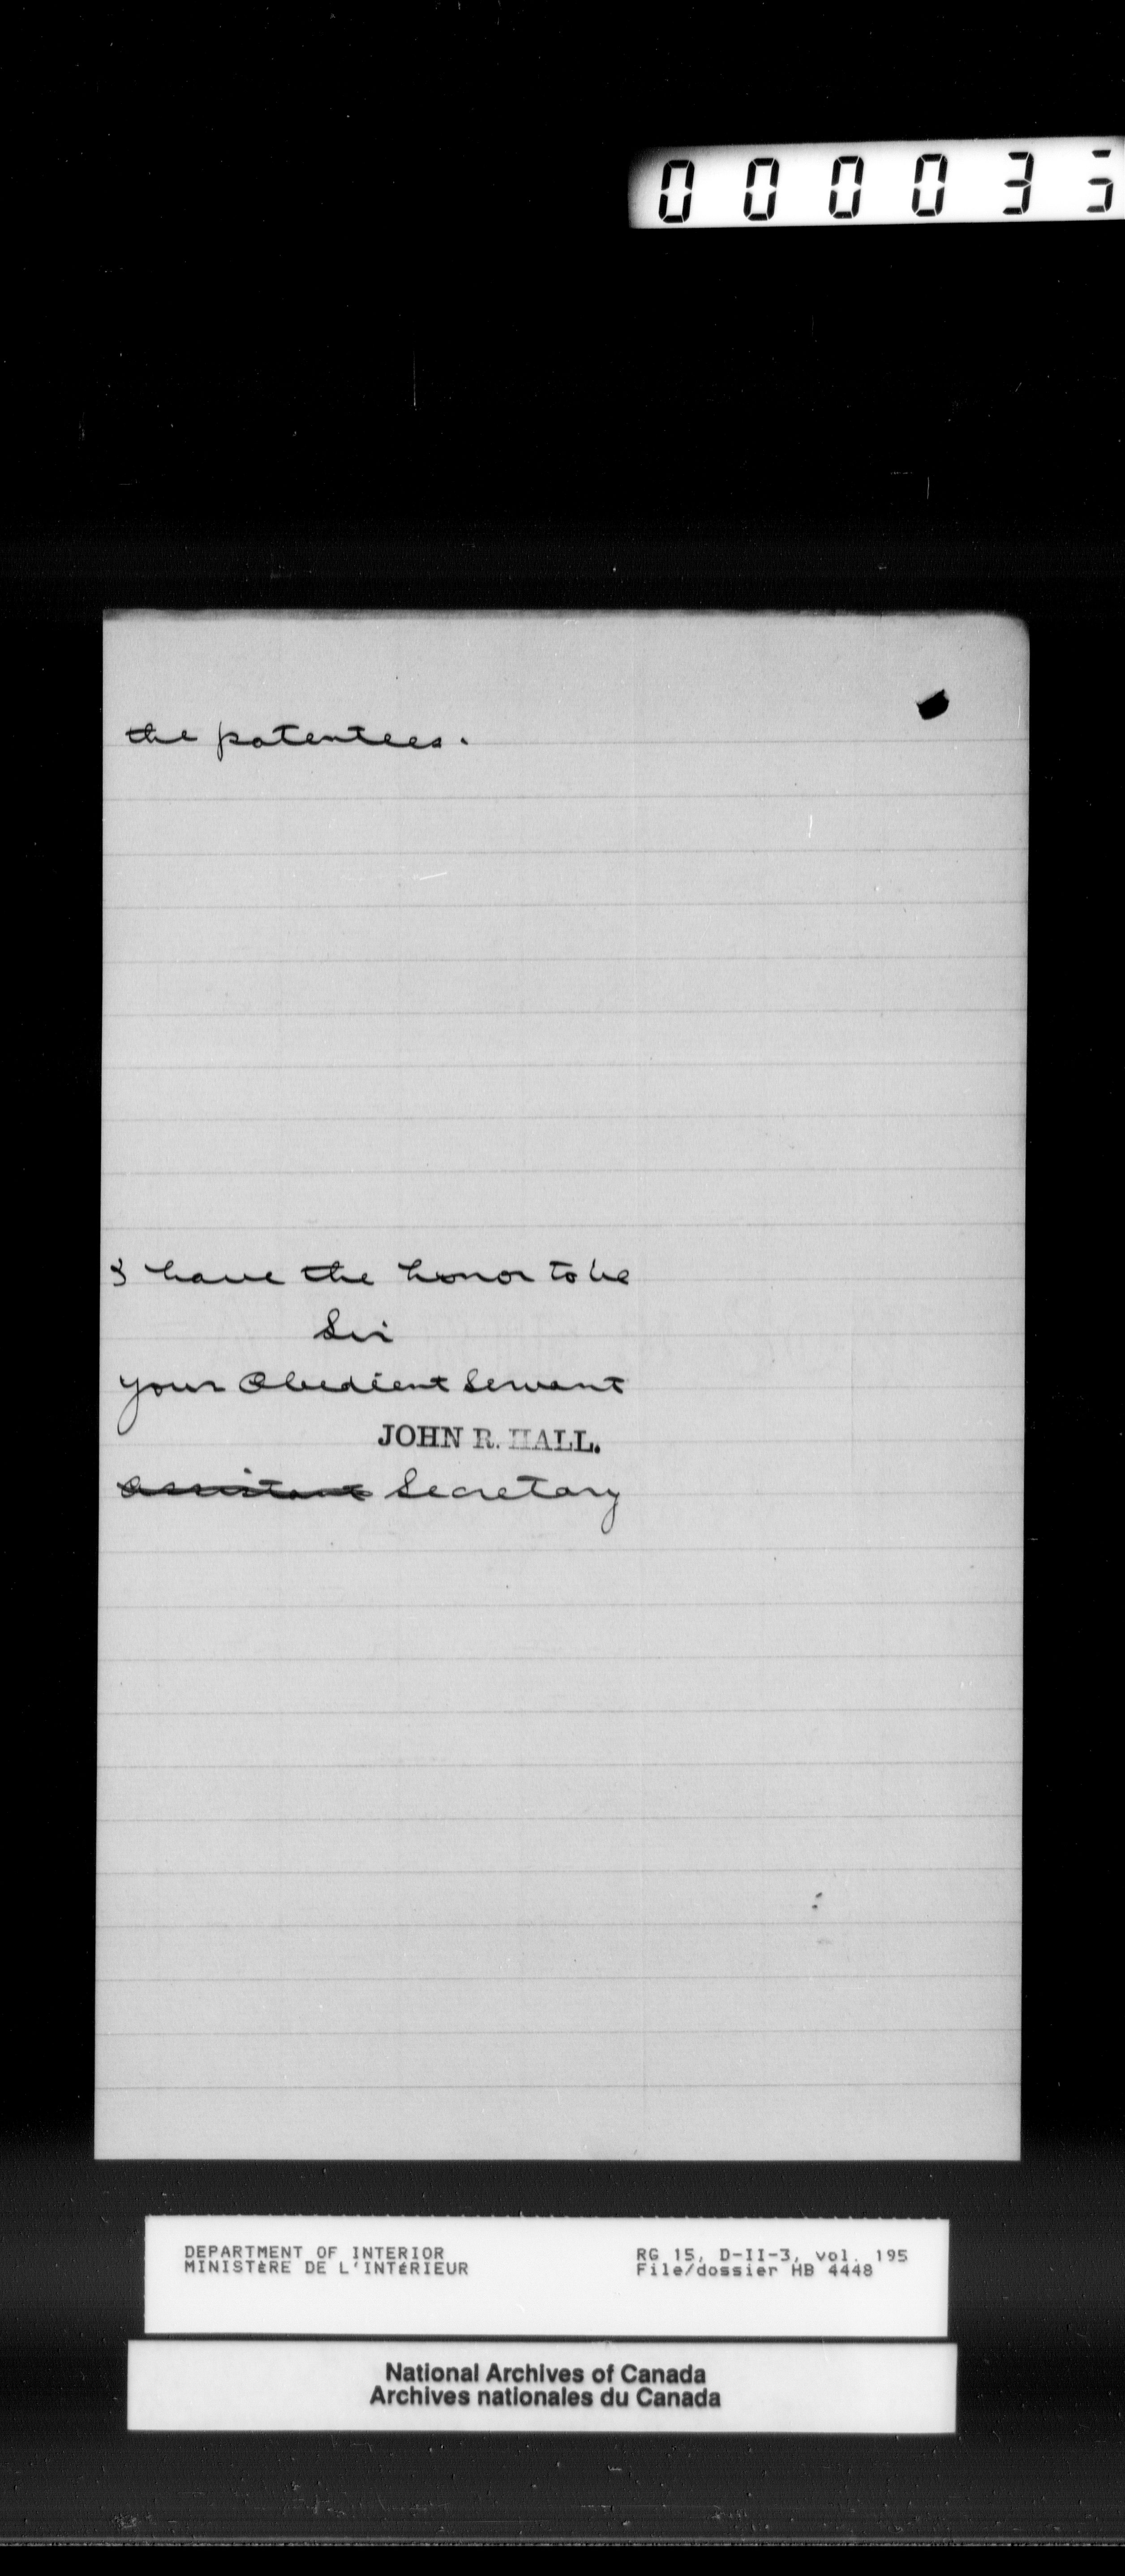 00003
the patentees.
I have the honor to be
Sir
your Obedient Servant
JOHN R. HALL.
assistant Secretary
DEPARTMENT OF INTERIOR
MINISTÈRE DE L'INTÉRIEUR
RG 15, D-II-3, vol. 195
File/dossier HB 4448
National Archives of Canada
Archives nationales du Canada